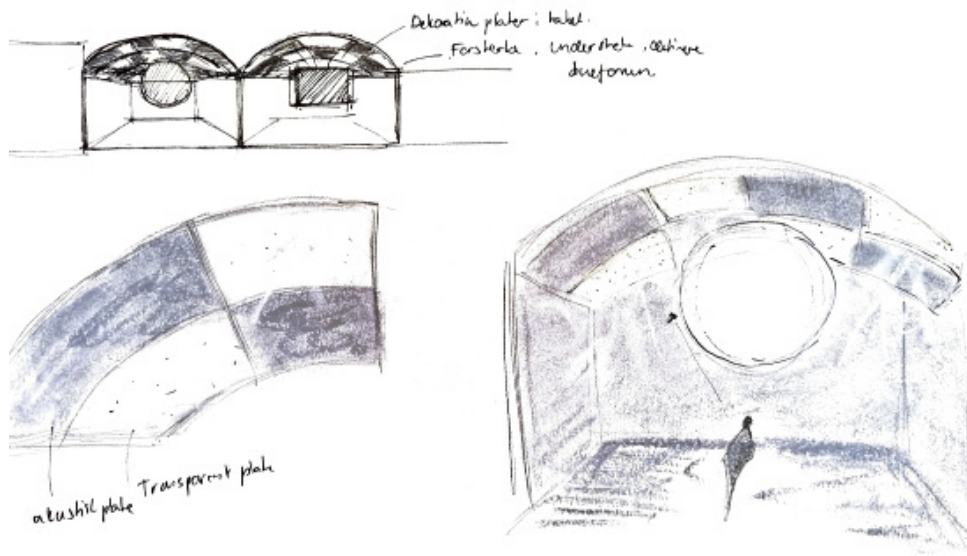 Dekorativ plater i taket.
Forsterke, understreke, definere
akustik plate
Transparent plate